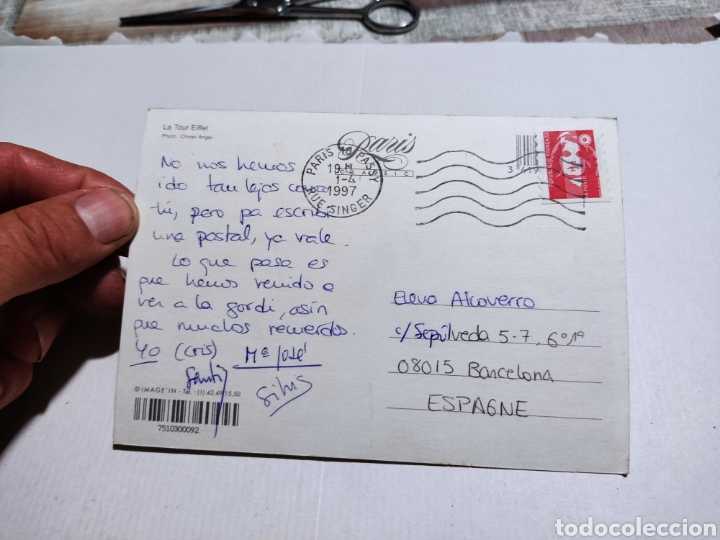 La Tour Eiffel
Photo : Olivier Anger
No nos hemos
ido tan lejos como
tú, pero pa escribir
una postal, ya vale.
Lo que pasa es
que hemos venido a
ver a la gordi, asín
que muchos recuerdos.
Yo (Cris) Mª José
Santi
Silvis
© IMAGE'IN - Tél. : (1) 43.49.15.50
7510300092
Paris
PARIS 16 PASSY
19 H
1-4
1997
RUE SINGER
Elena Alcoverro
c/ Sepúlveda 5-7, 6º 1ª
08015 Barcelona
ESPAGNE
todocoleccion